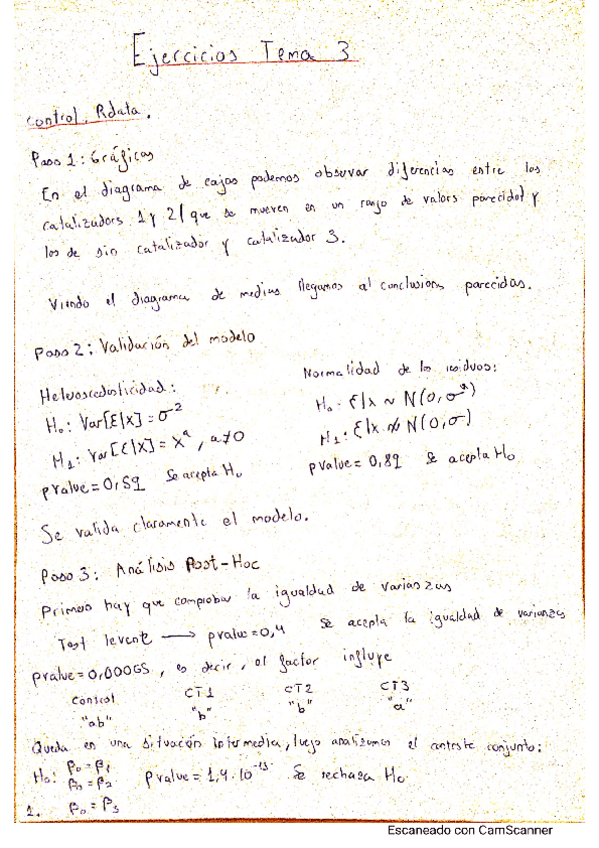 Ejercicios Tema 3
control. Rdata.
Paso 1: Gráficas
En el diagrama de cajas podemos observar diferencias entre los
catalizadors 1 y 2 ( que se mueven en un rango de valors parecidos) y
los de sin catalizador y catalizador 3.
Viendo el diagrama de medias llegamos a conclusions parecidas.
Paso 2: Validación del modelo
Heteroscedasticidad:
H₀: Var[ε|x] = σ²
H₁: Var[ε|x] = xᵃ, a≠0
pvalue = 0,59 Se acepta H₀
Normalidad de los residuos:
H₀: ε|x ~ N(0,σ²)
H₁: ε|x ≁ N(0,σ)
pvalue = 0,89 Se acepta H₀
Se valida claramente el modelo.
Paso 3: Análisis Post-Hoc
Primero hay que comprobar la igualdad de varianzas
Test levene → pvalue = 0,4 Se acepta la igualdad de varianzas
pvalue = 0,00065, es decir, el factor influye
Control CT1 CT2 CT3
"ab" "b" "b" "a"
Queda en una situación intermedia, luego analizamos el conjunto:
H₀: β₀ = β₁
β₀ = β₂
β₀ = β₃
pvalue = 1,4·10⁻¹⁵ Se rechaza H₀
1.
Escaneado con CamScanner